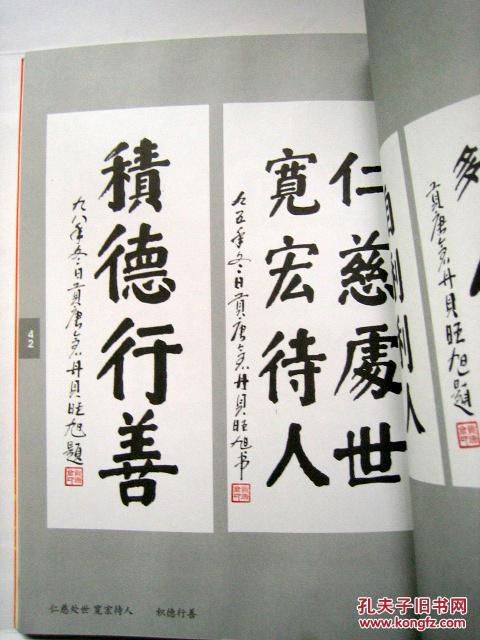 積德行善
九八年冬日貢唐倉丹貝旺旭題
仁慈處世
寬宏待人
九五年冬日貢唐倉丹貝旺旭书
利人
貢唐倉丹貝旺旭題
42
仁慈处世 宽宏待人
积德行善
孔夫子旧书网
www.kongfz.com